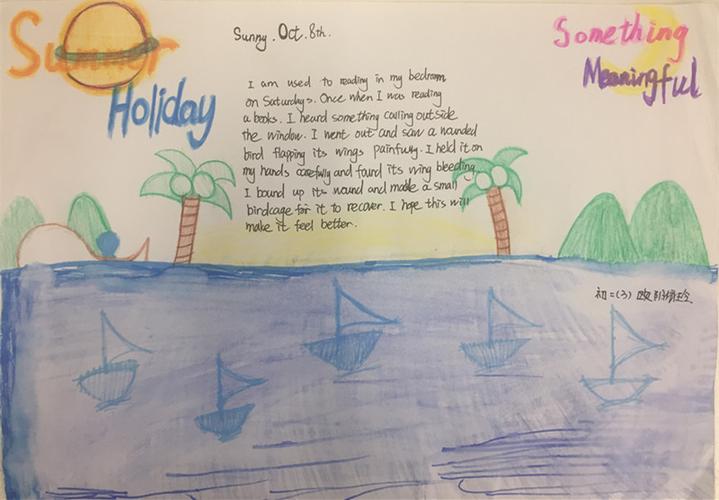 Summer
Holiday
Sunny. Oct. 8th.
Something
Meaningful
I am used to reading in my bedroom
on Saturdays. Once when I was reading
a books. I heard something calling outside
the window. I went out and saw a wounded
bird flapping its wings painfully. I held it on
my hands carefully and found its wing bleeding.
I bound up its wound and made a small
birdcage for it to recover. I hope this will
make it feel better.
初二(3)